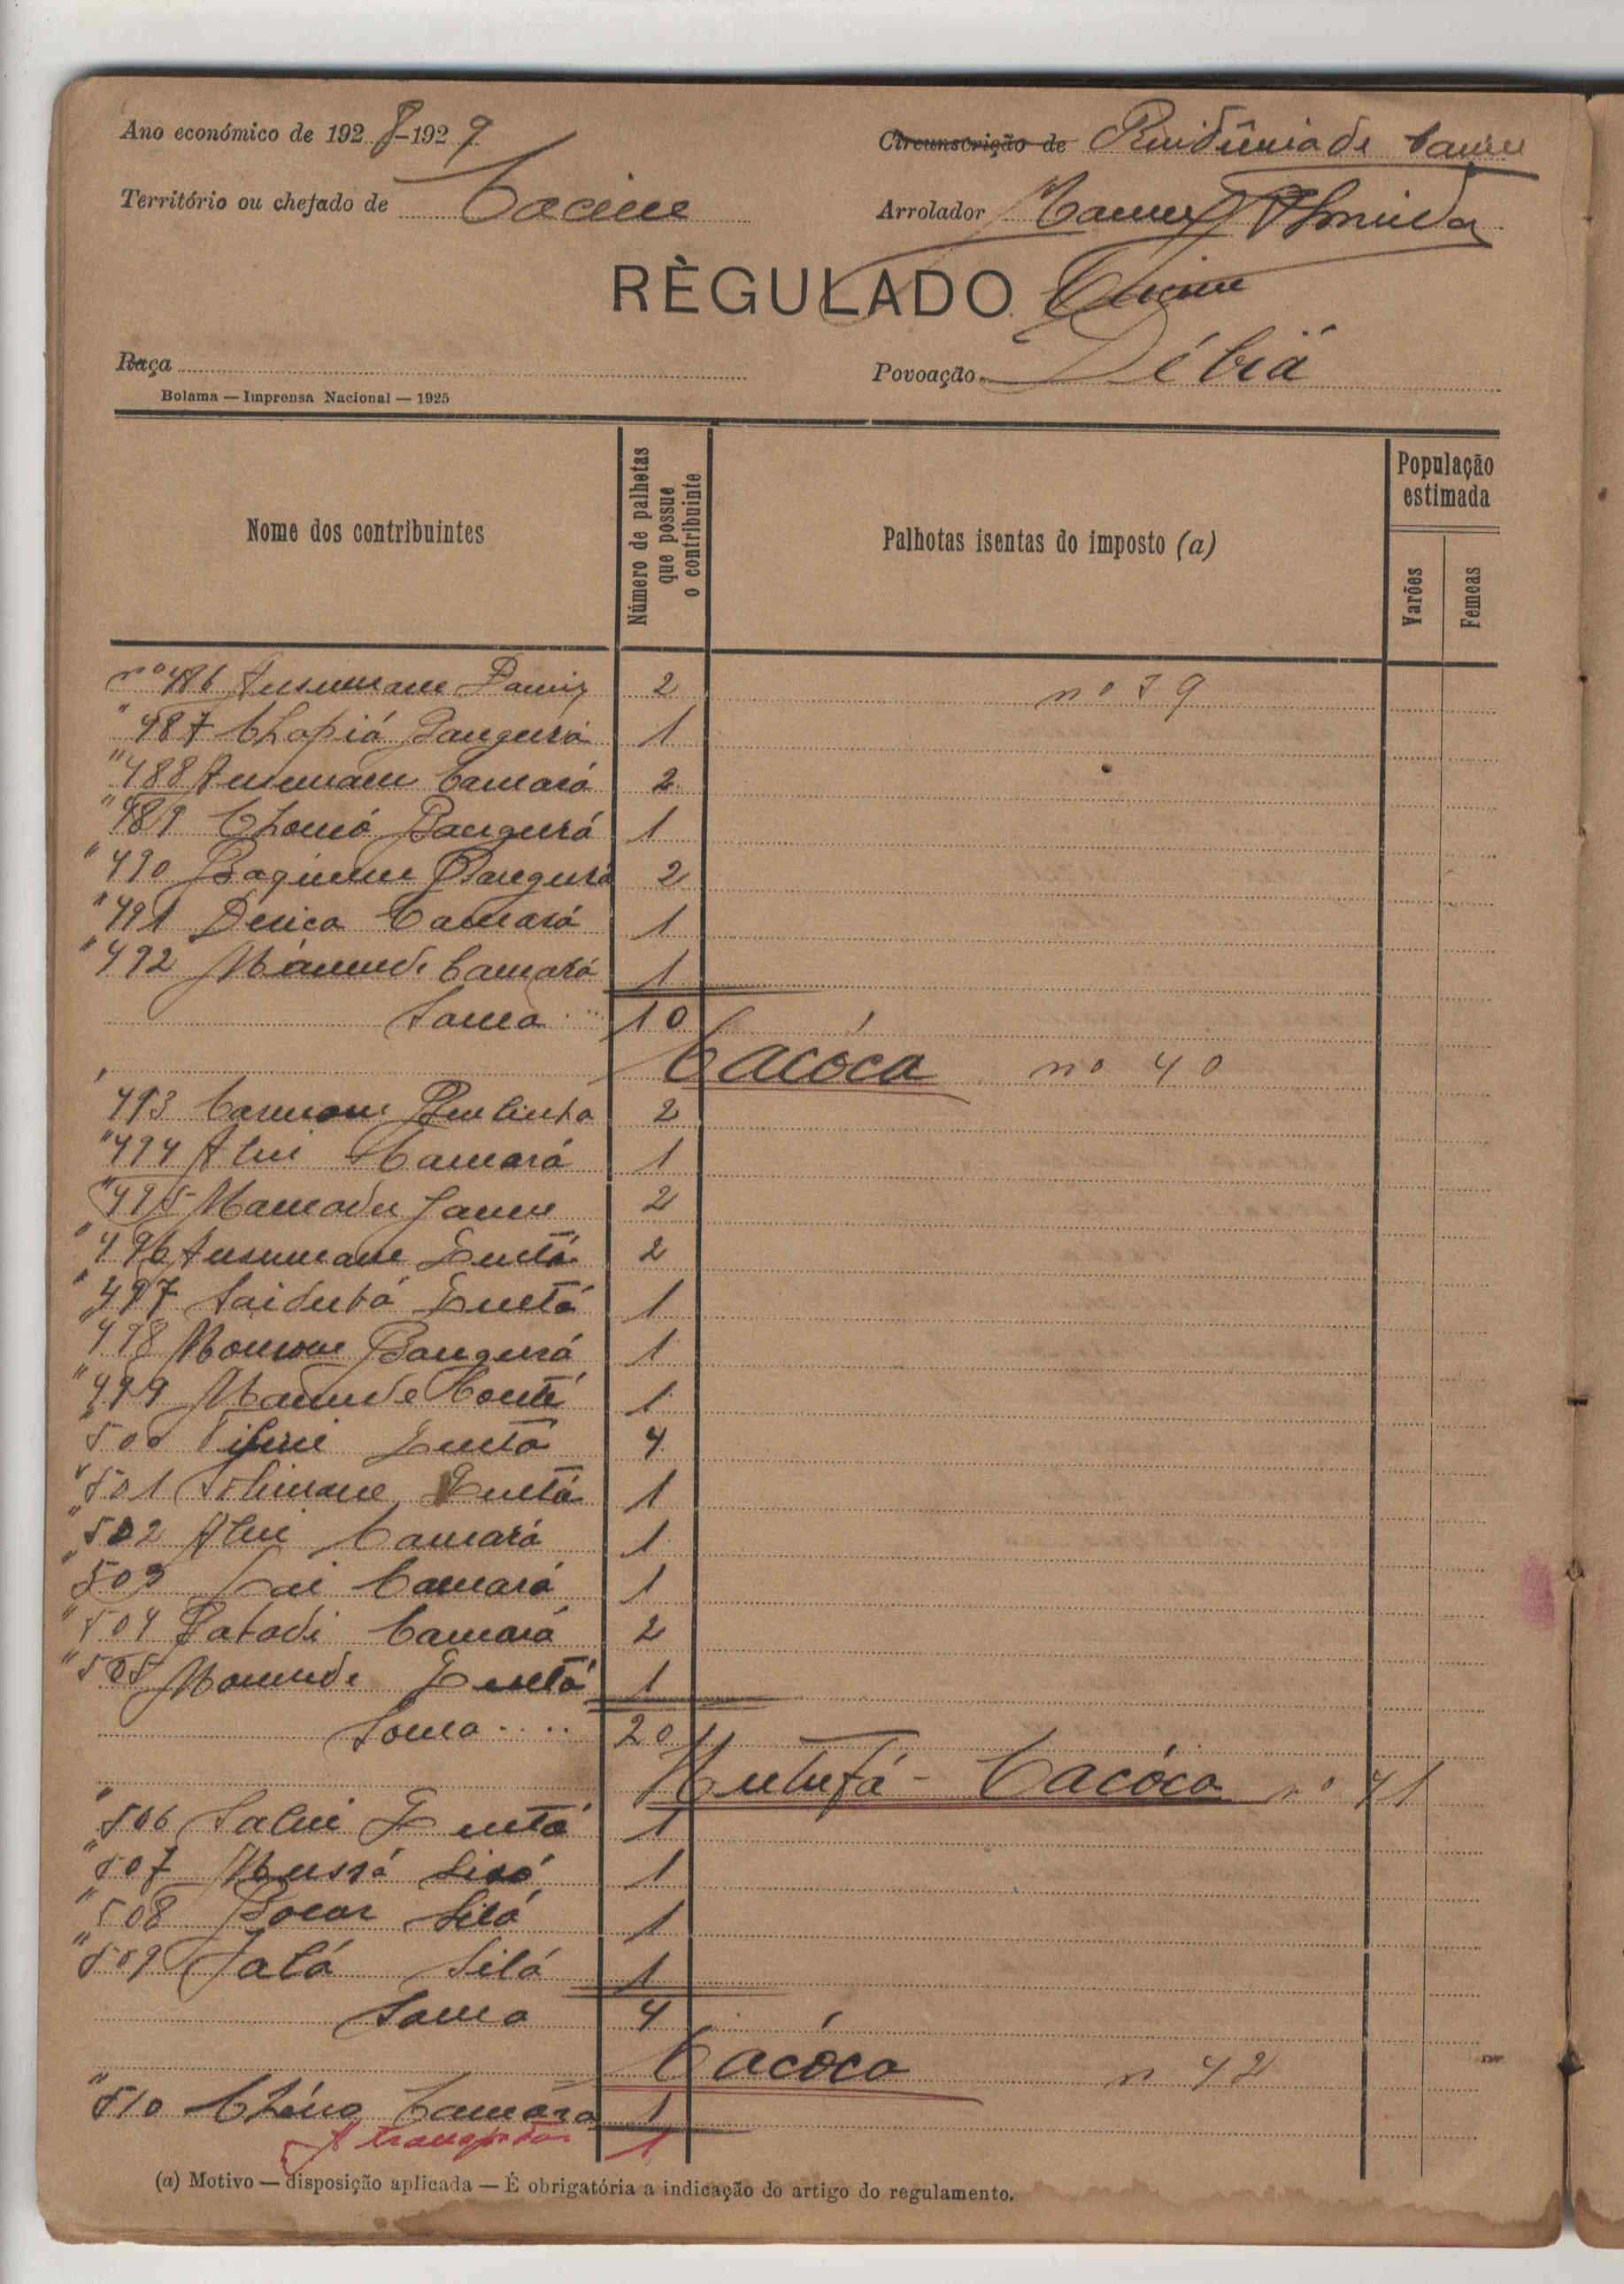 Ano económico de 1928-1929
Circunscrição de Residência de Cacine
Território ou chefado de Cacine
Arrolador Manuel Almeida
RÈGULADO Cacine
Raça
Povoação Débiä
Bolama — Imprensa Nacional — 1925
Nome dos contribuintes
Número de palhotas que possue o contribuinte
Palhotas isentas do imposto (a)
População estimada
Varões
Femeas
nº 486 Ansumane 2 nº 39
" 487 Chapiá Bangurá 1
" 488 Ansumane Camará 2
" 489 Chomó Bangurá 1
" 490 Bangurá 2
" 491 Camará 1
" 492 Mamude Camará 1
Soma 10
Cacóca nº 40
493 2
" 494 Alui Camará 1
" 495 Mamadu 2
" 496 Ansumane 2
" 497 Saidubá 1
" 498 Bangurá 1
" 499 Mamude Conté 1
" 500 4
" 501 1
" 502 Alui Camará 1
" 503 Camará 1
" 504 Camará 2
" 505 Mamude 1
Soma 20
Cacóca nº 41
" 506 Salui 1
" 507 Mussá 1
" 508 Bocar Silá 1
" 509 Silá 1
Soma 4
Cacóca n 42
" 510 Camará 1
A transportar 1
(a) Motivo — disposição aplicada — É obrigatória a indicação do artigo do regulamento.